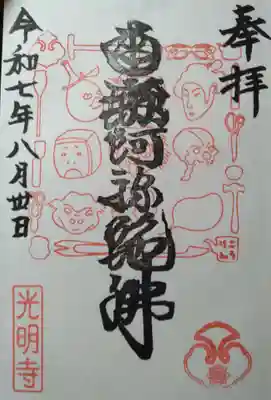 奉拝
南無阿弥陀佛
令和七年八月卅日
光明寺